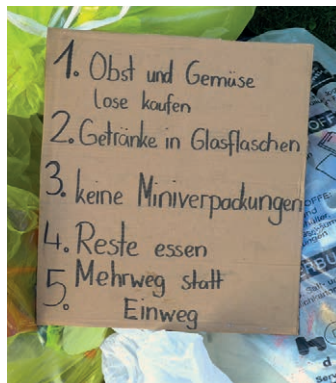 1. Obst und Gemüse
lose kaufen
2. Getränke in Glasflaschen
3. keine Miniverpackungen
4. Reste essen
5. Mehrweg statt
Einweg